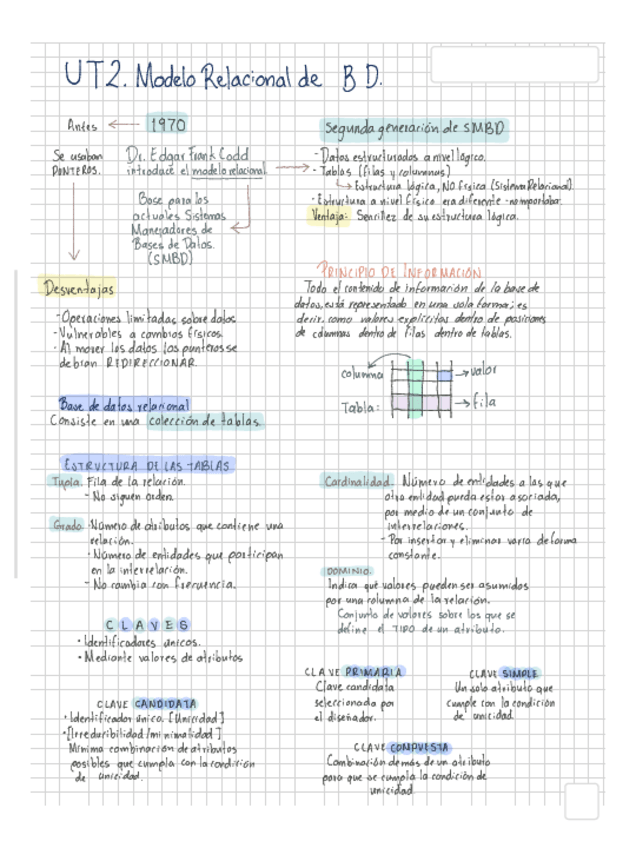 UT2. Modelo Relacional de BD.
Antes ← 1970
Se usaban
PUNTEROS.
Dr. Edgar Frank Codd
introduce el modelo relacional
Base para los
actuales Sistemas
Manejadores de
Bases de Datos.
(SMBD)
Segunda generación de SMBD
- Datos estructurados a nivel lógico.
- Tablas (filas y columnas)
Estructura lógica, NO física (Sistema Relacional).
· Estructura a nivel físico era diferente - no importaba.
Ventaja: Sencillez de su estructura lógica.
Desventajas
- Operaciones limitadas sobre datos
- Vulnerables a cambios físicos.
- Al mover los datos los punteros se
debían REDIRECCIONAR.
PRINCIPIO DE INFORMACIÓN
Todo el contenido de información de la base de
datos, está representado en una sola forma; es
decir, como valores explícitos dentro de posiciones
de columnas dentro de filas dentro de tablas.
columna
valor
Tabla:
fila
Base de datos relacional
Consiste en una colección de tablas.
ESTRUCTURA DE LAS TABLAS
Tupla. Fila de la relación.
- No siguen orden.
Grado · Número de atributos que contiene una
relación.
· Número de entidades que participan
en la interrelación.
- No cambia con frecuencia.
Cardinalidad. Número de entidades a las que
otra entidad pueda estar asociada,
por medio de un conjunto de
interrelaciones.
- Por insertar y eliminar varía de forma
constante.
DOMINIO.
Indica qué valores pueden ser asumidos
por una columna de la relación.
Conjunto de valores sobre los que se
define el TIPO de un atributo.
CLAVES
· Identificadores únicos.
· Mediante valores de atributos
CLAVE CANDIDATA
· Identificador único. [Unicidad]
· [Irreducibilidad/minimalidad]
Mínima combinación de atributos
posibles que cumpla con la condición
de unicidad.
CLAVE PRIMARIA
Clave candidata
seleccionada por
el diseñador.
CLAVE SIMPLE
Un solo atributo que
cumple con la condición
de unicidad.
CLAVE COMPUESTA
Combinación de más de un atributo
para que se cumpla la condición de
unicidad.